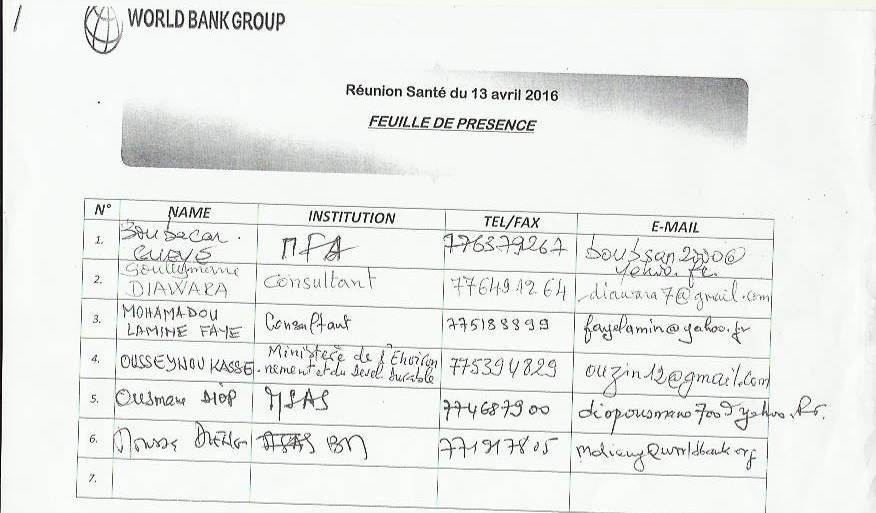 WORLD BANK GROUP
Réunion Santé du 13 avril 2016
FEUILLE DE PRESENCE
N° NAME INSTITUTION TEL/FAX E-MAIL
1. Boubacar GUEYE 776379267 boubsan2000@
2. DIAWARA Consultant 776491264 diawara7@gmail.com
3. MOHAMADOU
LAMINE FAYE Consultant 775188899 fayelamin@yahoo.fr
4. OUSSEYNOU KASSE Ministère de l'Environ
nement et du devel. durable 775394829 ouzin12@gmail.com
5. Ousmane DIOP MSAS 774687900
6. Moussa DIENG BM 771917805 mdieng@worldbank.org
7.